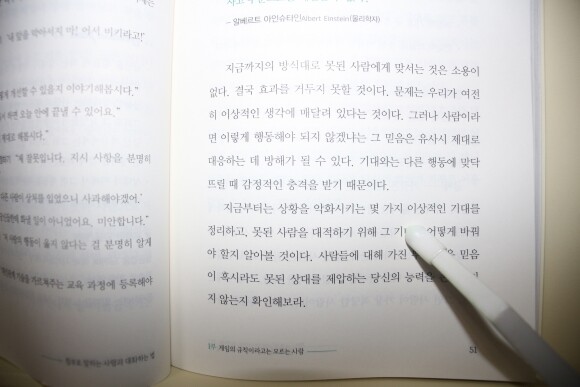 내 말을 막아서지 마! 어서 비키라고!'
떻게 개선할 수 있을지 이야기해봅시다."
하면 오늘 안에 끝낼 수 있어요."
해봅시다."
"제 잘못입니다. 지시 사항을 분명히
사람이 상처를 입었으니 사과해야겠어.'
일이 아니었어요. 미안합니다."
사람의 행동이 옳지 않다는 걸 분명히 알게
가르쳐주는 교육 과정에 등록해야
참으로 말하는 사람과 대화하는 법
— 알베르트 아인슈타인Albert Einstein(물리학자)
지금까지의 방식대로 못된 사람에게 맞서는 것은 소용이
없다. 결국 효과를 거두지 못할 것이다. 문제는 우리가 여전
히 이상적인 생각에 매달려 있다는 것이다. 그러나 사람이라
면 이렇게 행동해야 되지 않겠냐는 그 믿음은 유사시 제대로
대응하는 데 방해가 될 수 있다. 기대와는 다른 행동에 맞닥
뜨릴 때 감정적인 충격을 받기 때문이다.
지금부터는 상황을 악화시키는 몇 가지 이상적인 기대를
정리하고, 못된 사람을 대적하기 위해 그 어떻게 바꿔
야 할지 알아볼 것이다. 사람들에 대해 가진 믿음
이 혹시라도 못된 상대를 제압하는 당신의 능력을
지 않는지 확인해보라.
1부. 게임의 규칙이라고는 모르는 사람
51